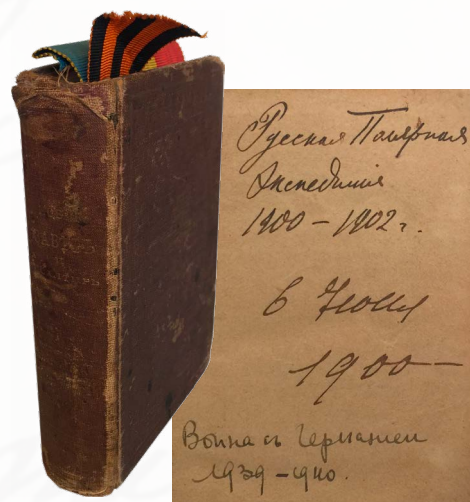 Русская Полярная
Экспедиція
1900 – 1902 г.
6 Іюня
1900 –
Война съ Германіей
1939 – 1940.